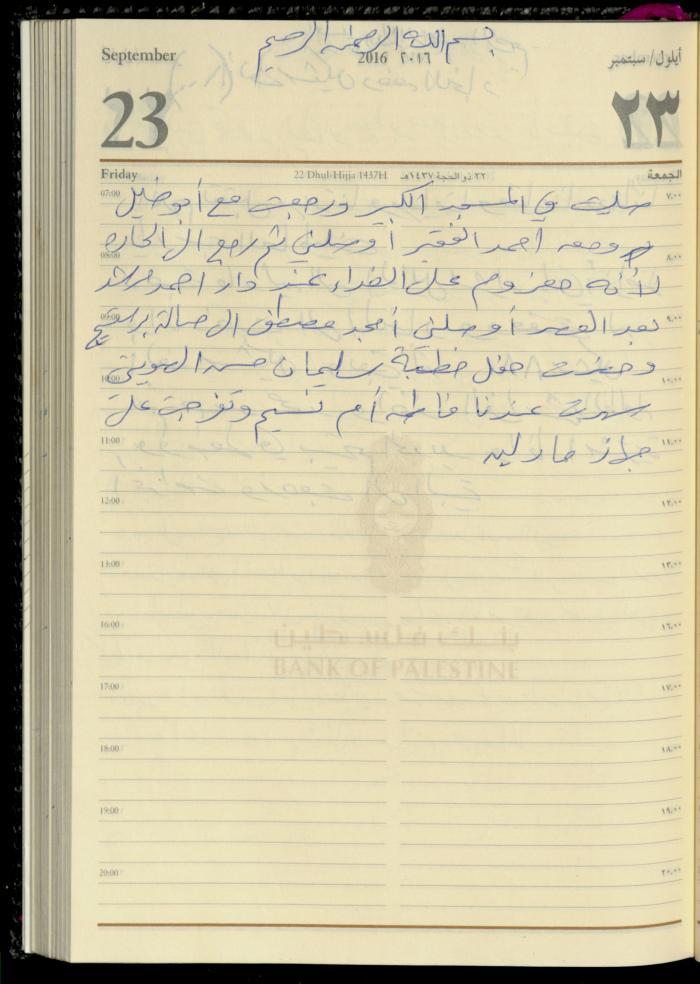 بسم الله الرحمن الرحيم
September 2016 ٢٠١٦ أيلول/ سبتمبر
23 ٢٣
Friday 22 Dhul-Hijja 1437H ٢٢ ذو الحجة ١٤٣٧هـ الجمعة
07:00 ٧:٠٠
صليت في المسجد الكبير ورجعت مع أبو خليل
ومعه أحمد الفقير أوصلني ثم رجع الى الحاره
08:00 ٨:٠٠
لأنه معزوم على الغداء عند دار احمد مرشد
09:00 ٩:٠٠
بعد العصر أوصلني أمجد مصطفى الى صالة
وحضرت حفل خطبة سليمان حسن
10:00 ١٠:٠٠
سهرت عندنا فاطمه أم نسيم وتفرجت على
11:00 ١١:٠٠
جهاز مادلين
12:00 ١٢:٠٠
13:00 ١٣:٠٠
16:00 ١٦:٠٠
بنك فلسطين
BANK OF PALESTINE
17:00 ١٧:٠٠
18:00 ١٨:٠٠
19:00 ١٩:٠٠
20:00 ٢٠:٠٠